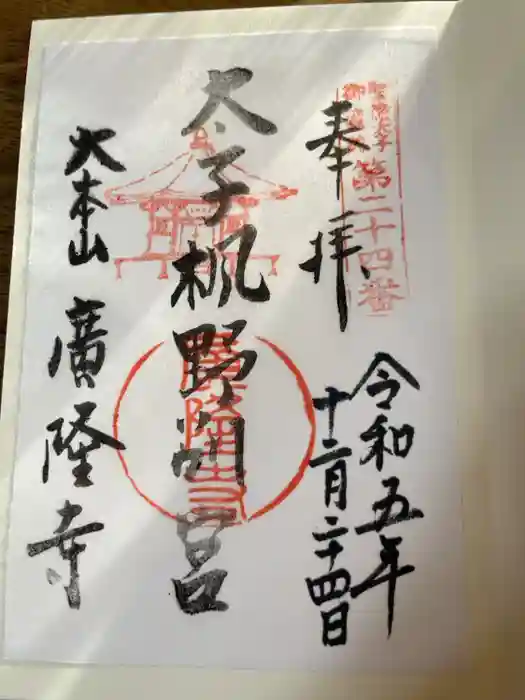 聖徳太子
御遺跡
第二十四番
奉拝
令和五年
十二月二十四日
太子楓野別宮
廣隆寺
大本山
廣隆寺